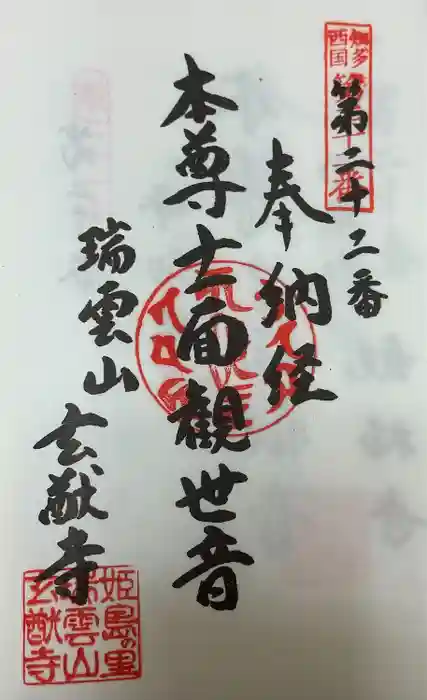 第二十二番
奉納経
本尊十一面観世音
瑞雲山
玄猷寺
姫島の里
瑞雲山
玄猷寺